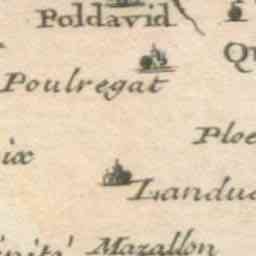 Poldavid
Qu
Poulregat
Ploe
ix
Landu
Mazallon